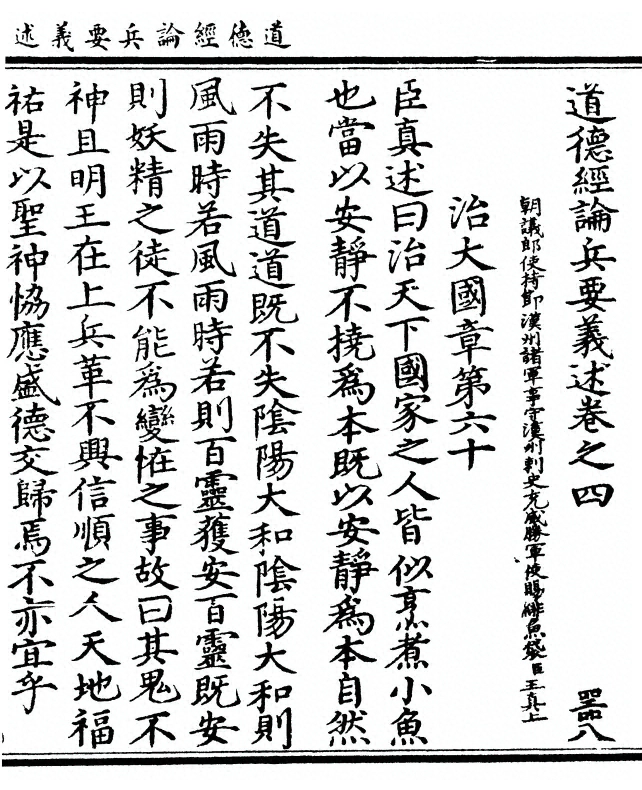 道德經論兵要義述
道德經論兵要義述卷之四 器八
朝議郎使持節漢州諸軍事守漢州刺史充威勝軍使賜緋魚袋臣王真上
治大國章第六十
臣真述曰治天下國家之人皆似烹煮小魚
也當以安靜不撓爲本既以安靜爲本自然
不失其道道既不失陰陽大和陰陽大和則
風雨時若風雨時若則百靈獲安百靈既安
則妖精之徒不能爲變恠之事故曰其鬼不
神且明王在上兵革不興信順之人天地福
祐是以聖神恊應盛德交歸焉不亦宜乎